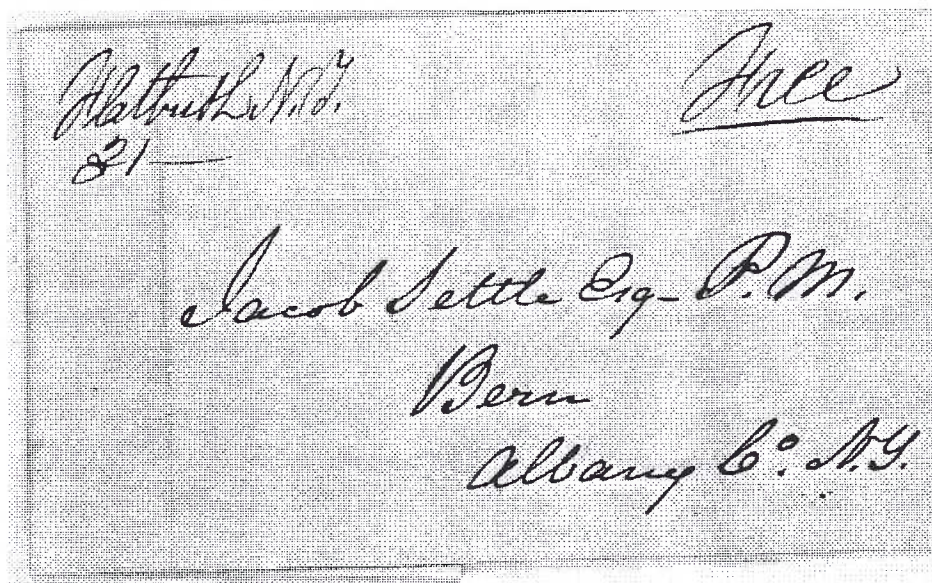 Flatbush N.Y.
Free
21 —
Jacob Settle Esq - P. M.
Bern
Albany Co. N.Y.